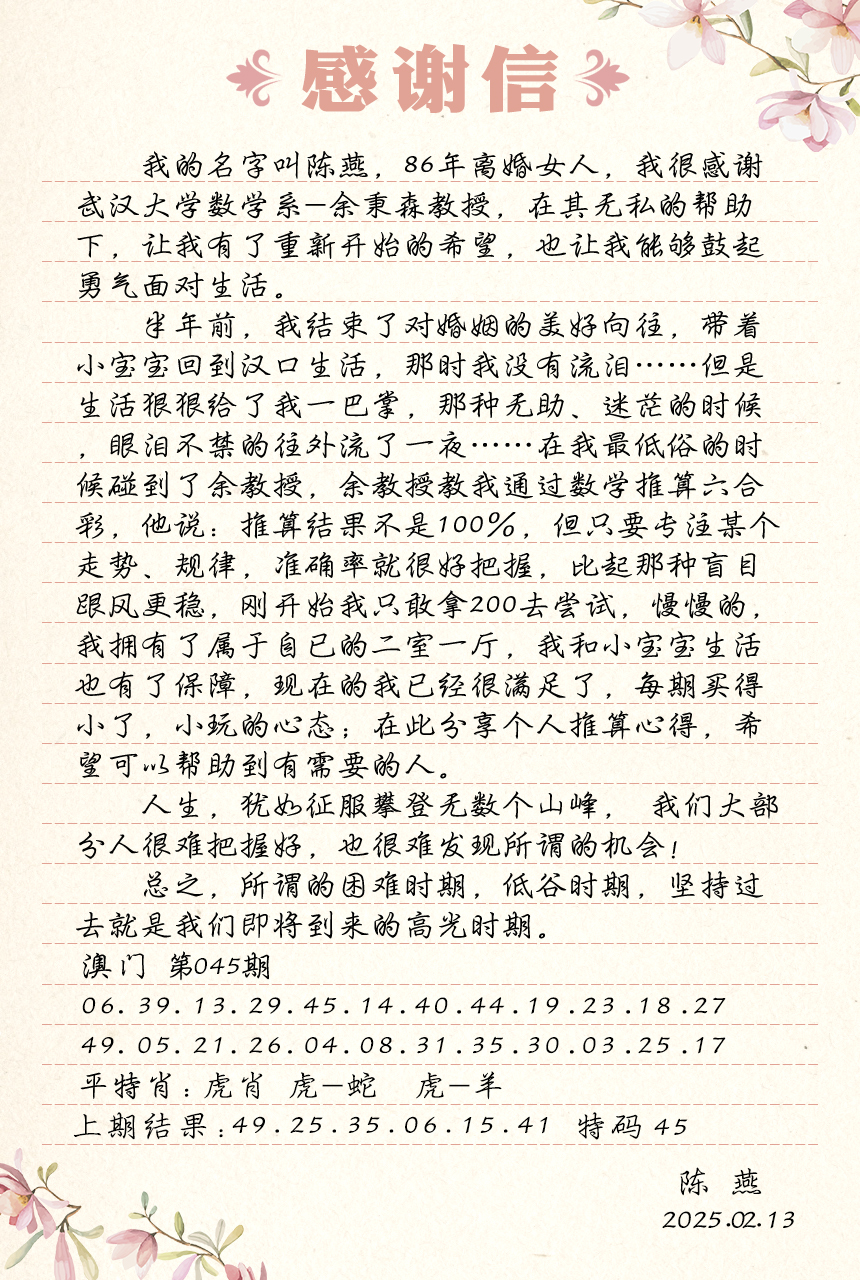 感谢信
我的名字叫陈燕，86年离婚女人，我很感谢
武汉大学数学系—余秉森教授，在其无私的帮助
下，让我有了重新开始的希望，也让我能够鼓起
勇气面对生活。
半年前，我结束了对婚姻的美好向往，带着
小宝宝回到汉口生活，那时我没有流泪……但是
生活狠狠给了我一巴掌，那种无助、迷茫的时候
，眼泪不禁的往外流了一夜……在我最低俗的时
候碰到了余教授，余教授教我通过数学推算六合
彩，他说：推算结果不是100%，但只要专注某个
走势、规律，准确率就很好把握，比起那种盲目
跟风更稳，刚开始我只敢拿200去尝试，慢慢的，
我拥有了属于自已的二室一厅，我和小宝宝生活
也有了保障，现在的我已经很满足了，每期买得
小了，小玩的心态；在此分享个人推算心得，希
望可以帮助到有需要的人。
人生，犹如征服攀登无数个山峰， 我们大部
分人很难把握好，也很难发现所谓的机会！
总之，所谓的困难时期，低谷时期，坚持过
去就是我们即将到来的高光时期。
澳门 第045期
06.39.13.29.45.14.40.44.19.23.18.27
49.05.21.26.04.08.31.35.30.03.25.17
平特肖：虎肖 虎—蛇 虎—羊
上期结果：49.25.35.06.15.41 特码 45
陈 燕
2025.02.13